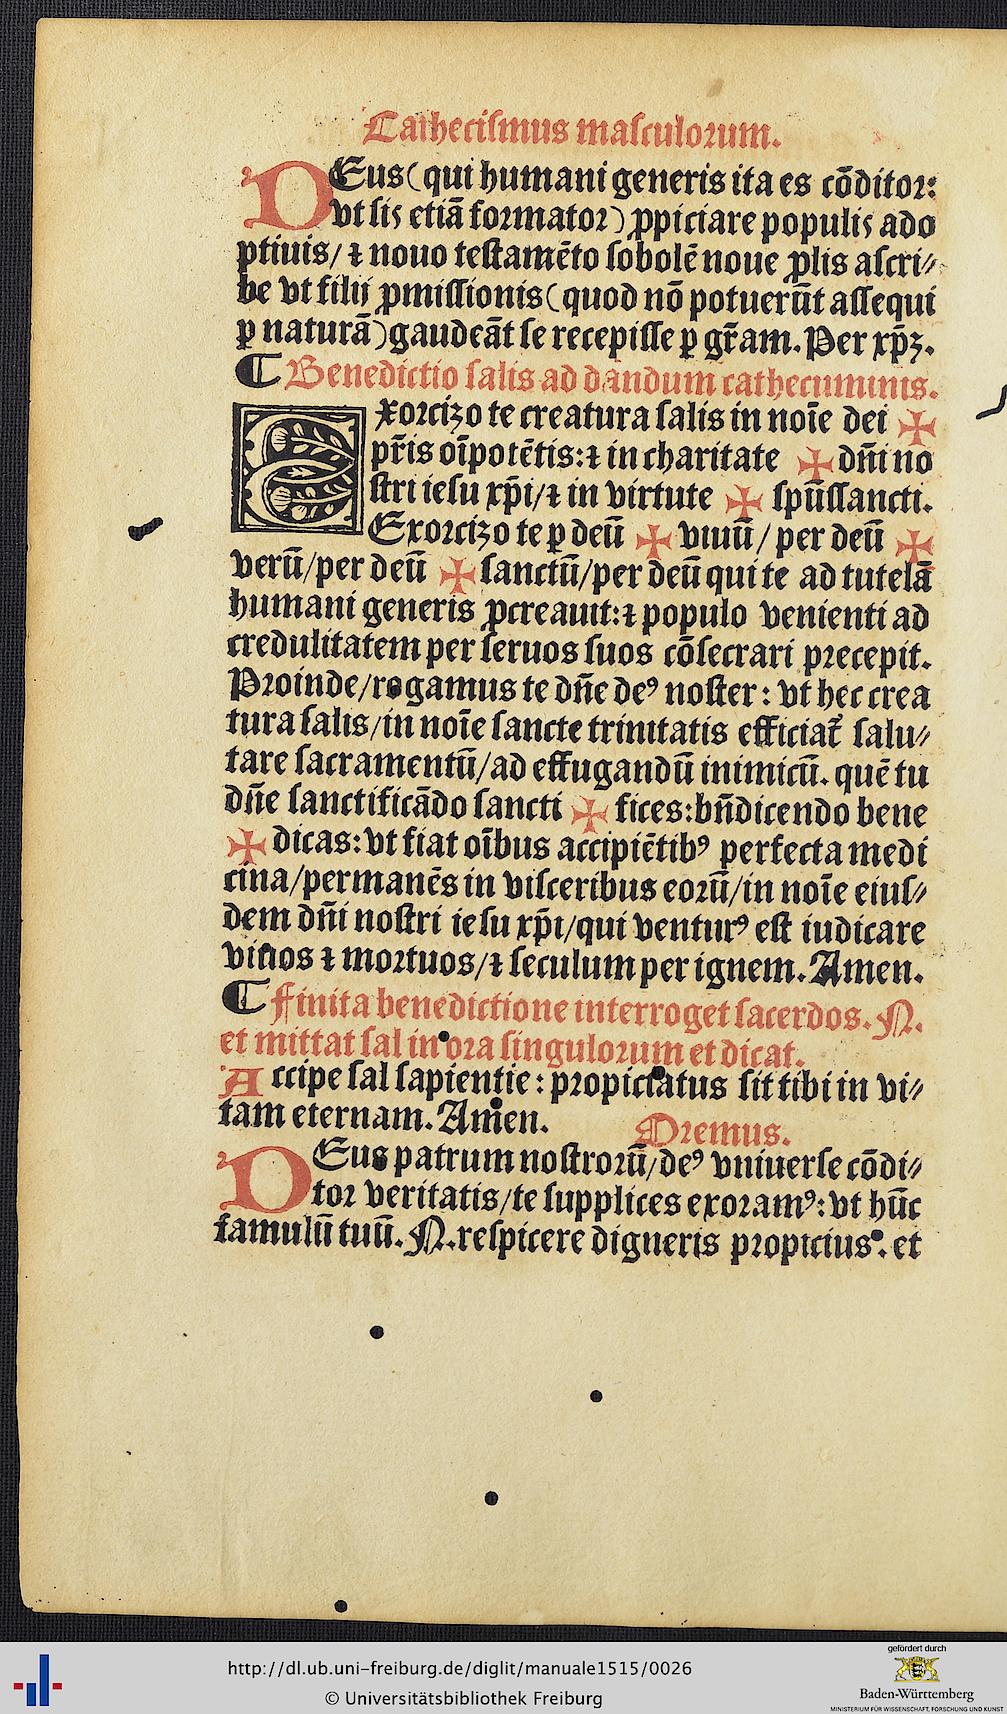 Cathecismus masculorum.
DEus (qui humani generis ita es cōditor:
vt sis etiā formator) ꝓpiciare populis ado
ptiuis/ ⁊ nouo testamēto sobolē noue ꝓlis ascri⸗
be vt filij ꝓmissionis (quod nō potuerūt assequi
ꝑ naturā) gaudeāt se recepisse ꝑ gr̄am. Per xp̄ꝫ.
¶ Benedictio salis ad dandum cathecuminis.
Exorcizo te creatura salis in noīe dei ✠
pr̄is oīpotētis: ⁊ in charitate ✠ dn̄i no
stri iesu xp̄i/ ⁊ in virtute ✠ spūssancti.
Exorcizo te ꝑ deū ✠ viuū/ per deū ✠
verū/ per deū ✠ sanctū/ per deū qui te ad tutelā
humani generis ꝓcreauit: ⁊ populo venienti ad
credulitatem per seruos suos cōsecrari precepit.
Proinde/ rogamus te dn̄e deꝰ noster: vt hec crea
tura salis/ in noīe sancte trinitatis efficiat᷑ salu⸗
tare sacramentū/ ad effugandū inimicū. quē tu
dn̄e sanctificādo sancti ✠ fices: bn̄dicendo bene
✠ dicas: vt fiat oībus accipiētibꝰ perfecta medi
cina/ permanēs in visceribus eorū/ in noīe eius⸗
dem dn̄i nostri iesu xp̄i/ qui venturꝰ est iudicare
viuos ⁊ mortuos/ ⁊ seculum per ignem. Amen.
¶ Finita benedictione interroget sacerdos. N.
et mittat sal in ora singulorum et dicat.
Accipe sal sapientie: propiciatus sit tibi in vi⸗
tam eternam. Amen. Oremus.
DEus patrum nostrorū/ deꝰ vniuerse cōdi⸗
tor veritatis/ te supplices exoramꝰ: vt hūc
famulū tuū. N. respicere digneris propicius. et
http://dl.ub.uni-freiburg.de/diglit/manuale1515/0026
© Universitätsbibliothek Freiburg
gefördert durch
Baden-Württemberg
MINISTERIUM FÜR WISSENSCHAFT, FORSCHUNG UND KUNST